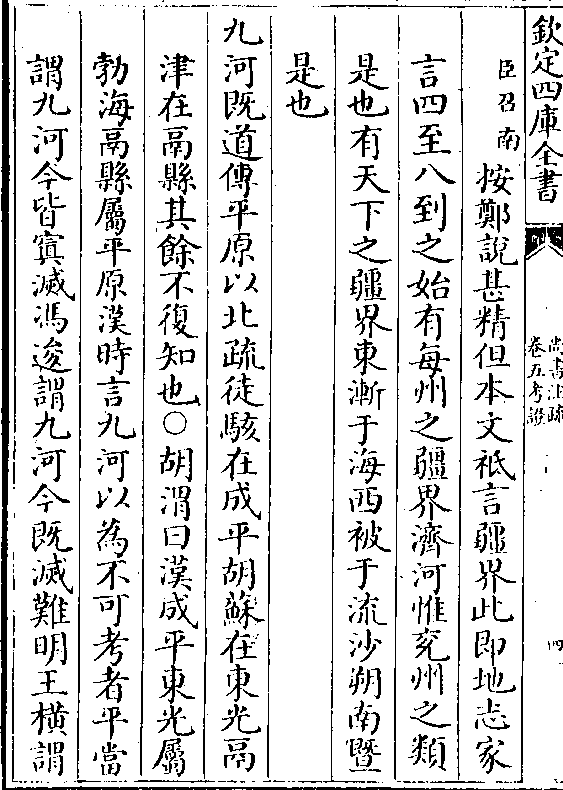 欽定四庫全書
尚書注疏
卷五考證
四
臣召南按鄭說甚精但本文祗言疆界此即地志家
言四至八到之始有每州之疆界濟河惟兖州之類
是也有天下之疆界東漸于海西被于流沙朔南暨
是也
九河既道傳平原以北疏徒駭在成平胡蘇在東光鬲
津在鬲縣其餘不復知也○胡渭曰漢成平東光屬
勃海鬲縣屬平原漢時言九河以為不可考者平當
謂九河今皆寘滅馮逡謂九河今既滅難明王橫謂